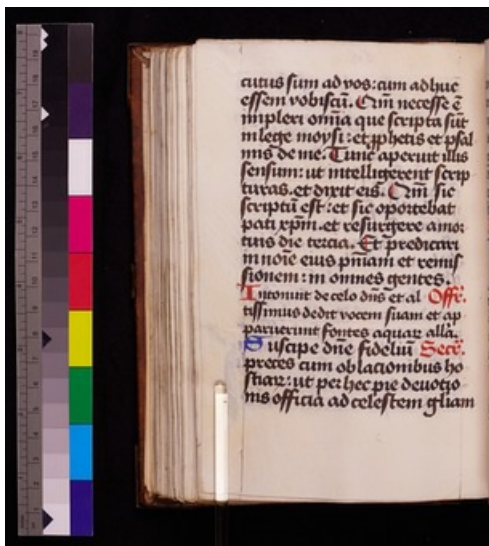 cutus sum ad vos: cum adhuc
essem vobiscū. Qm̄ necesse ē
impleri om̄ia que scripta sūt
in lege moysi: et ꝓphetis et psal
mis de me. Tunc aperuit illis
sensum: ut intelligerent scrip
turas. et dixit eis. Qm̄ sic
scriptū est: et sic oportebat
pati xp̄m. et resurgere a mor
tuis die tercia. Et predicari
in noīe eius pn̄iam et remis
sionem: in omnes gentes.
Intonuit de celo dn̄s et al Offr̄.
tissimus dedit vocem suam et ap
paruerunt fontes aquaꝝ all̄a.
Suscipe dn̄e fideliū Secr̄.
preces cum oblacionibus ho
stiaꝝ: ut per hec pie devotio
nis officia ad celestem gl̄iam